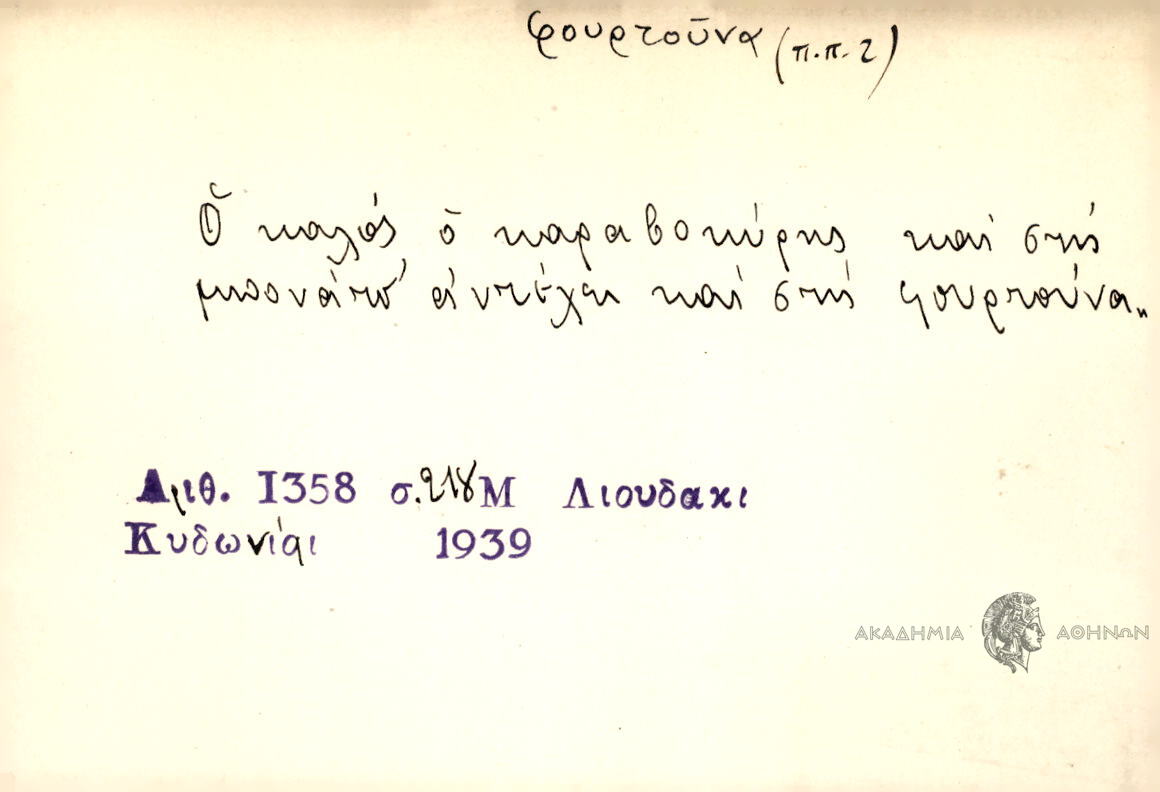 φουρτοῦνα (π.π. 2)
Ὁ καλὸς ὁ καραβοκύρης καὶ στὴ
μπονάτσ' ἀντέχει καὶ στὴ φουρτούνα„
Αριθ. 1358 σ. 218 Μ Λιουδακι
Κυδωνίαι 1939
ΑΚΑΔΗΜΙΑ ΑΘΗΝΩΝ